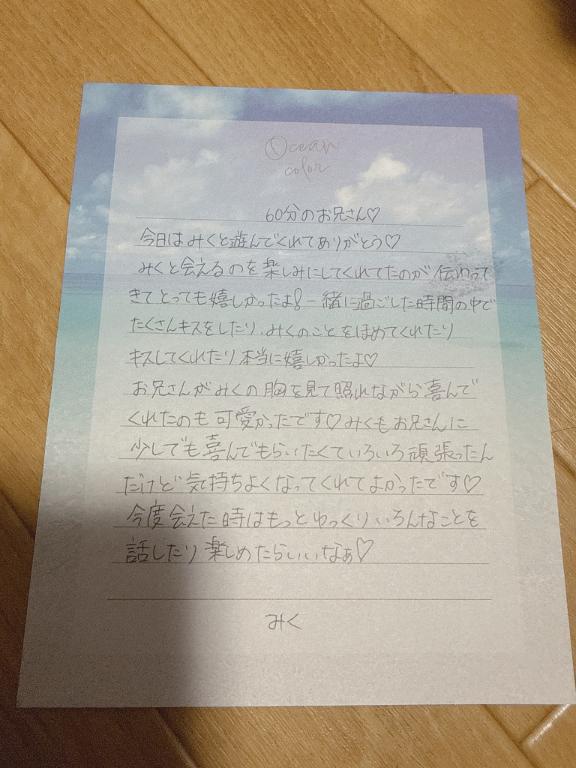 Ocean
color
60分のお兄さん♡
今日はみくと遊んでくれてありがとう♡
みくと会えるのを楽しみにしてくれてたのが伝わって
きてとっても嬉しかったよ！一緒に過ごした時間の中で
たくさんキスをしたり、みくのことをほめてくれたり
キスしてくれたり本当に嬉しかったよ♡
お兄さんがみくの胸を見て照れながら喜んで
くれたのも可愛かったです♡みくもお兄さんに
少しでも喜んでもらいたくていろいろ頑張ったん
だけど気持ちよくなってくれてよかったです♡
今度会えた時はもっとゆっくりいろんなことを
話したり楽しめたらいいなぁ♡
みく